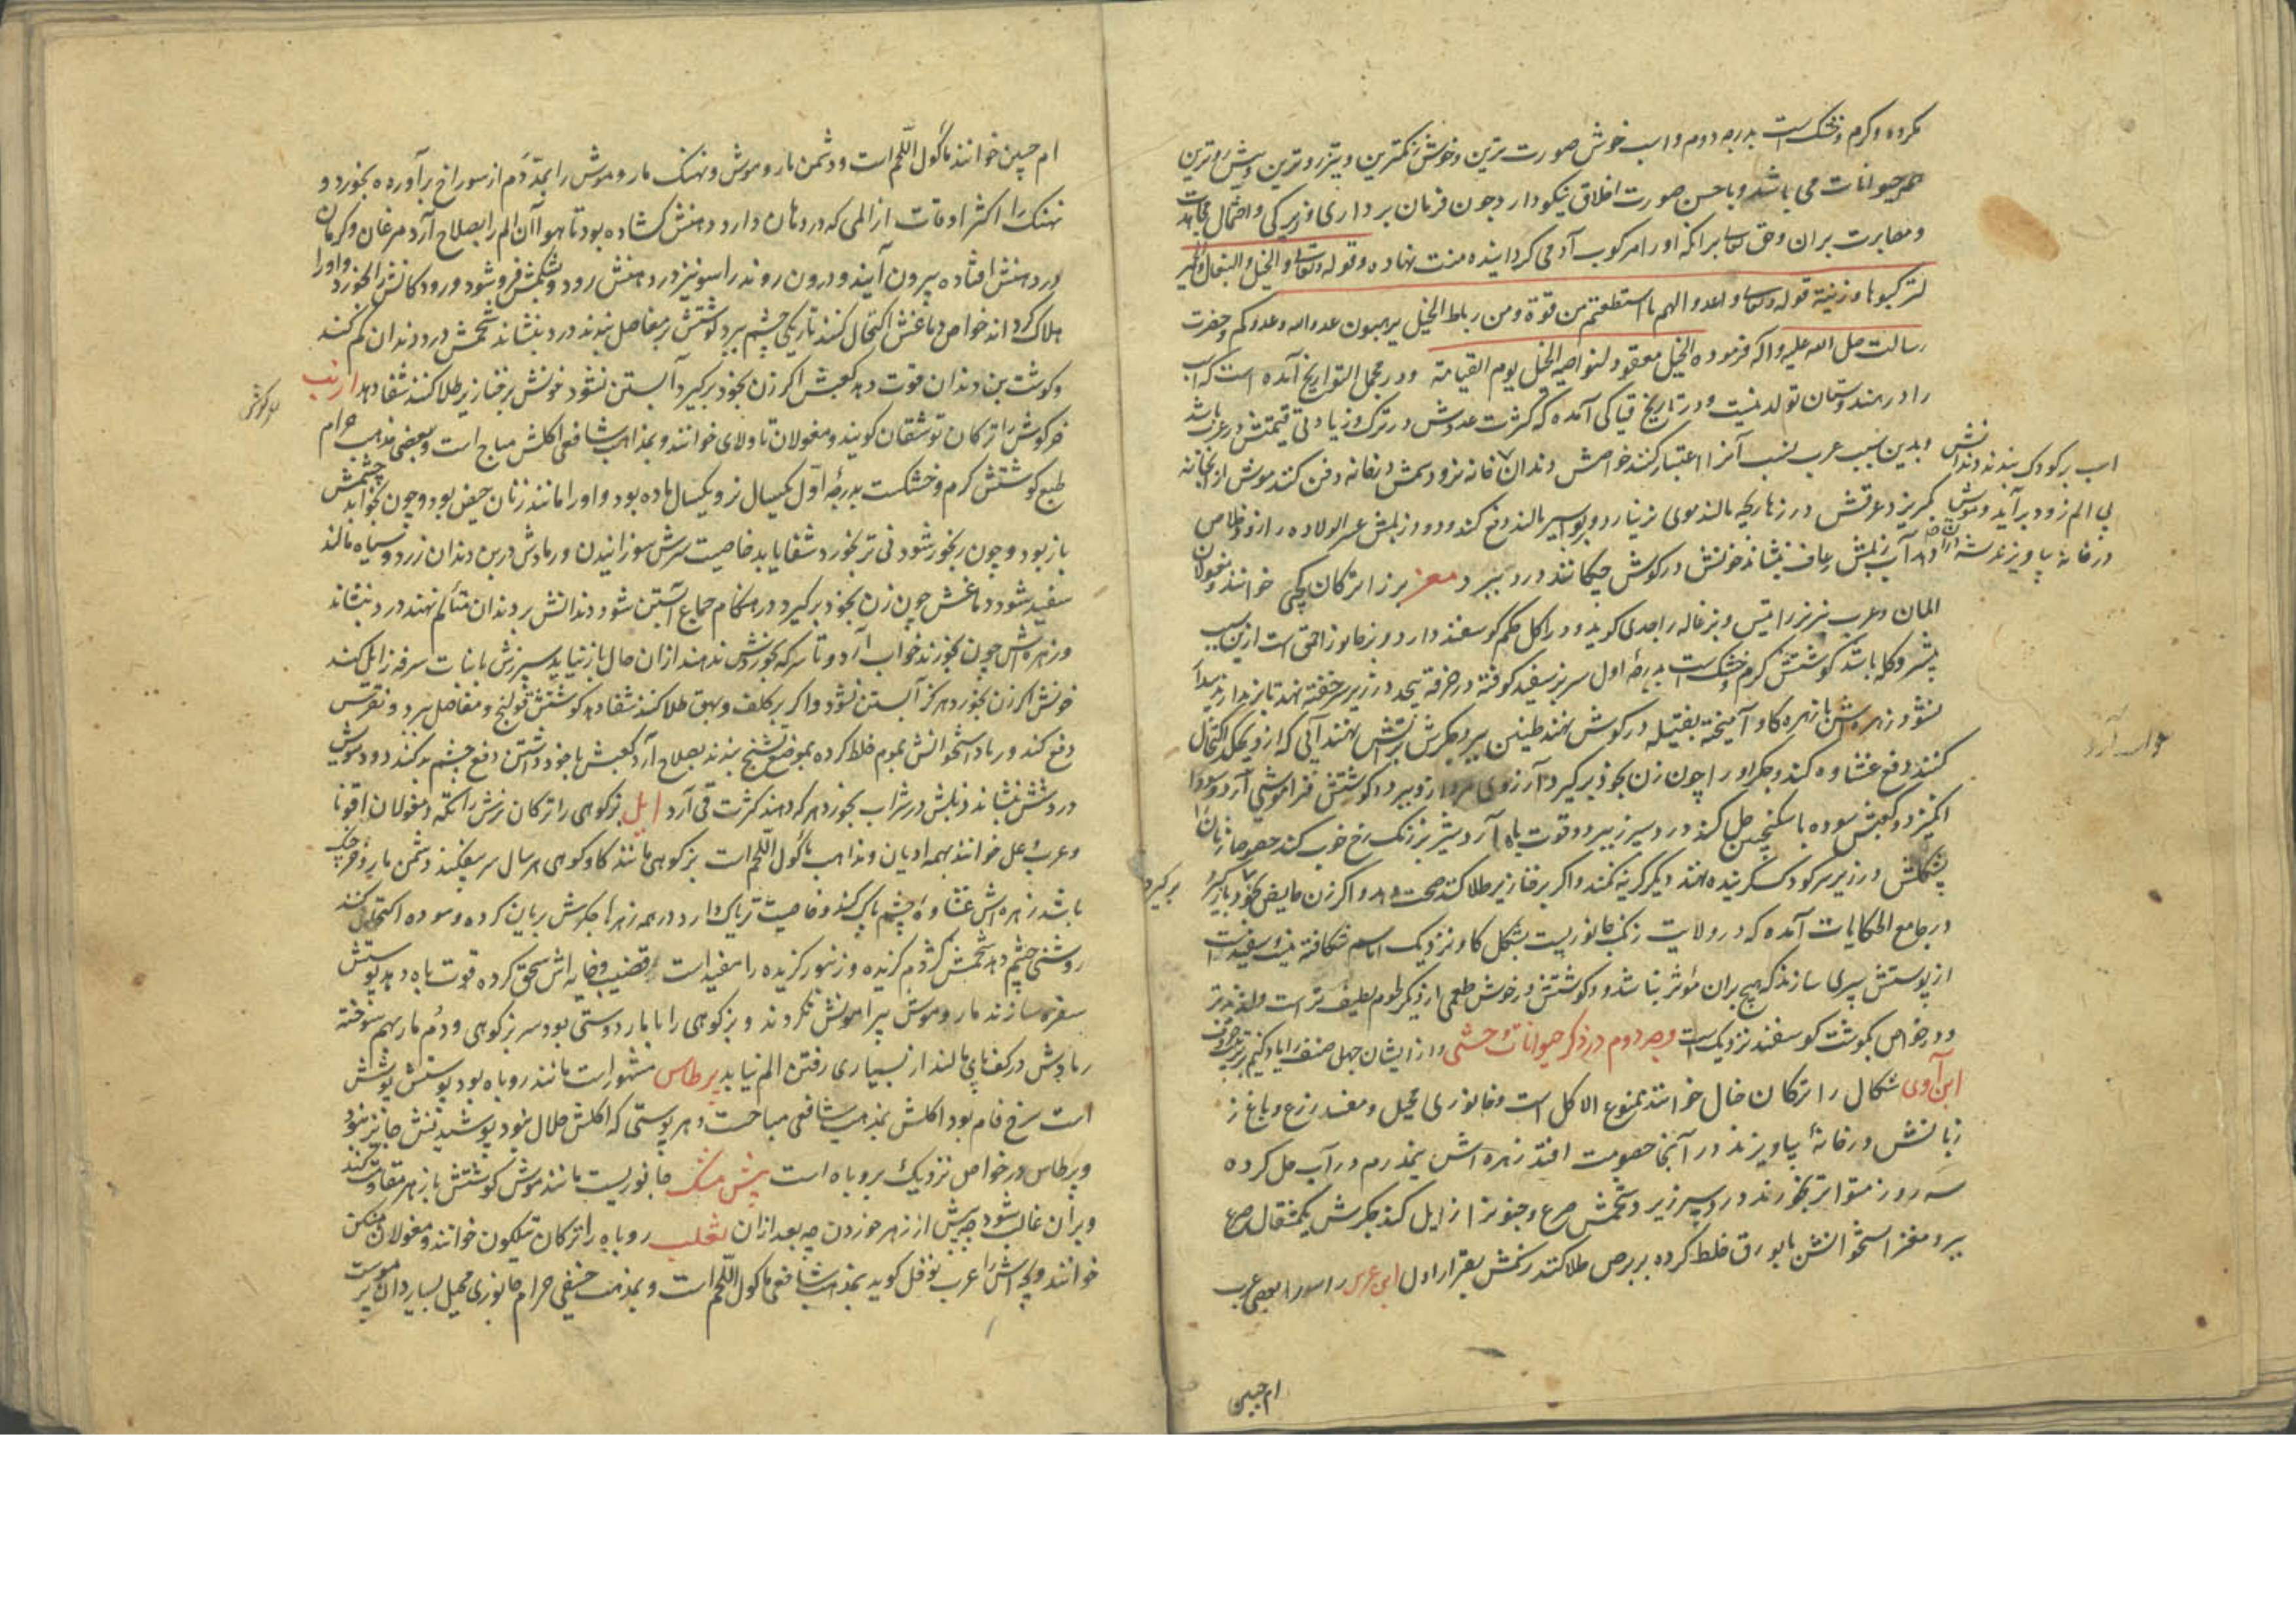 مکروه و گرم و خشکست بدرجه دوم و اسب خوش صورت ترین و خوش رنگترین و تیزروترین و پیش روترین
همه حیوانات می باشد و با حسن صورت اخلاق نیکو دارد چون فرمان برداری و زیرکی و احتمال مجاهدت
و مصابرت بران و حق تعالی برانکه او را مرکوب آدمی گردانیده منت نهاده و قوله تعالی و الخیل و البغال و الحمیر
لترکبوها و زینة قوله تعالی و اعدوا لهم ما استطعتم من قوة و من رباط الخیل یرهبون عدو الله و عدوکم و حضرت
رسالت صلی الله علیه و اله فرموده الخیل معقود لنواصیه الخیل یوم القیامة و در مجمل التواریخ آمده است که اسب
را در هندوستان تولد نیست و در تاریخ قیاکی آمده که کثرت عددش در ترک و زیادتی قیمتش در عرب باشد
و بدین سبب عرب نسب آنرا اعتبار کنند خواصش دندان
اسب بر کودک بندند دندانش
بی الم زود برآید و موش بگریزد عرقش در زهار بچه مالند موی نزیارد و بواسیر مالند دفع کند و دود زبلش عسر الولاده را زود خلاص
دهد آب زبلش رعاف بنشاند خونش در گوش چکانند درد ببرد معز بز را ترکان یچکی خوانند و مغولان
المان و عرب نر بز را تیس و بزغاله را جدی گویند و در اکل حکم گوسفند دارد و بز جانور احمق است ازین سبب
پیشرو گله باشد گوشتش گرم و خشکست بدرجه اول سر بز سفید کوفته در خرقه پیچد در زیر سر خفته نهند تا بر ندارند بیدار
نشود زهره اش با زهره گاو آمیخته بفتیله در گوش نهند طنین ببرد جگرش بر آتش نهند آبی که ازو بچکد اکتحال
کنند دفع غشاوه کند و جگر او را چون زن بخود برگیرد آرزوی مرد ازو ببرد گوشتش فراموشی آرد و سودا
انگیزد و کعبش سوده با سکنجبین حل کند درد سپرز ببرد و قوت باه آرد شیر بز رنگ رخ خوب کند خصوصا زنان را
پشکلش در زیر سر کودک گرینده نهند دیگر گریه نکند و اگر بر خنازیر طلا کنند صحت دهد و اگر زن حایض بخود باز گیرد
برگیرد
در جامع الحکایات آمده که در ولایت زنک جانوریست بشکل گاو نزدیک اما سم شکافته نیست و سفیدست
از پوستش سپری سازند که هیچ بران مؤثر نباشد و گوشتش در خوش طعمی از دیگر لحوم لطیف تر است و لذیذتر
و در خواص بگوشت گوسفند نزدیکست وجه دوم در ذکر حیوانات وحشی و از ایشان چهل صنف را یاد کنیم بترتیب حروف
ابن آوی شکال را ترکان خال خوانند ممنوع الاکل است و جانوری محیل و مفسد زرع و باغ ز
زبانش در خانه بیاویزند در آنجا خصومت افتد زهره اش نیمدرم در آب حل کرده
سه روز متواتر بخورند درد سپرز ببرد شحمش صرع و جنون زایل کند جگرش یکمثقال صرع
ببرد مغز استخوانش با بورق خلط کرده بر برص طلا کنند رنگش بقرار اول ابن عرس راسو را بعضی عرب
ام حبین
ام حبین خوانند مأکول اللحم است و دشمن مار و موش و نهنگ مار و موش را بمدّ دَم از سوراخ برآورده بخورد و
نهنگ را اکثر اوقات از المی که در دهان دارد دهنش گشاده بود تا هوا آن الم را بصلاح آرد مرغان و کرمان
در دهنش افتاده بیرون آیند و درون روند راسو نیز در دهنش رود و بشکمش فروشود و رودگانش را بخورد و او را
هلاک کرداند خواص دماغش اکتحال کنند تاریکی چشم ببرد گوشتش بر مفاصل بندند درد بنشاند شحمش درد دندان کم کند
و گوشت بن دندان قوت دهد کعبش اگر زن بخود برگیرد آبستن نشود خونش بر خنازیر طلا کنند شفا دهد ارنب
خرگوش
خرگوش را ترکان توشقان گویند و مغولان تاولای خوانند و بمذهب شافعی اکلش مباح است و ببعضی مذهب حرام
طبع گوشتش گرم و خشکست بدرجهٔ اول یکسال نر و یکسال ماده بود و او را مانند زنان حیض بود و چون بخوابد چشمش
باز بود و چون رنجور شود نی تر بخورد شفا یابد خاصیت سرش سوزانیدن و رمادش در بن دندان زرد و سیاه مالند
سفید شود دماغش چون زن بخود برگیرد در هنگام جماع آبستن شود دندانش بر دندان متألم نهند درد بنشاند
و زهره اش چون بخورند خواب آرد و تا سرکه بخوردش ندهند ازان حال باز نیاید سپرزش با نبات سرفه زایل کند
خونش اگر زن بخورد هرگز آبستن نشود و اگر بر کلف و بهق طلا کنند شفا دهد گوشتش قولنج و مفاصل ببرد و نقرس
دفع کند و رماد استخوانش بموم خلط کرده بموضع تشنج بندند بصلاح آرد کعبش با خود داشتن دفع چشم بد کند و دود مویش
درد شش بنشاند زبلش در شراب بخورد هر که دهند کثرت قی آرد ایل بز کوهی را ترکان نرش را تکه و مغولان اقونا
و عرب وعل خوانند بهمه ادیان و مذاهب مأکول اللحم است بز کوهی مانند گاو کوهی هر سال سر بیفکند دشمن مار و خرچنگ
باشد زهره اش غشاوه چشم پاک کند و خاصیت تریاک دارد در همه زهرها جگرش بریان کرده و سوده اکتحال کنند
روشنی چشم دهد شحمش کژدم گزیده و زنبور گزیده را مفید است قضیب و خایه اش سحق کرده قوت باه دهد پوستش
سفره سازند مار و موش پیرامونش نگردند و بز کوهی را با مار دوستی بود سر بز کوهی و دُم مار بهم سوخته
رمادش در کف پای مالند از بسیاری رفتن الم نیابد برطاس مشهور است مانند روباه بود پوستش پوشش
است سرخ فام بود اکلش بمذهب شافعی مباحست و هر پوستی که اکلش حلال نبود پوشیدنش جایز نبود
و برطاس در خواص نزدیک بروباه است پیش مشک جانوریست مانند موش گوشتش با زهر مقاومت کند
و بر آن غالب شود چه پیش از زهر خوردن چه بعد ازان ثعلب روباه را ترکان تیلکو خوانند و مغولان
خوانند و بچه اش را عرب نوفل گوید بمذهب شافعی مأکول اللحم است و بمذهب حنیفی حرام جانوری محیل بسیاردان